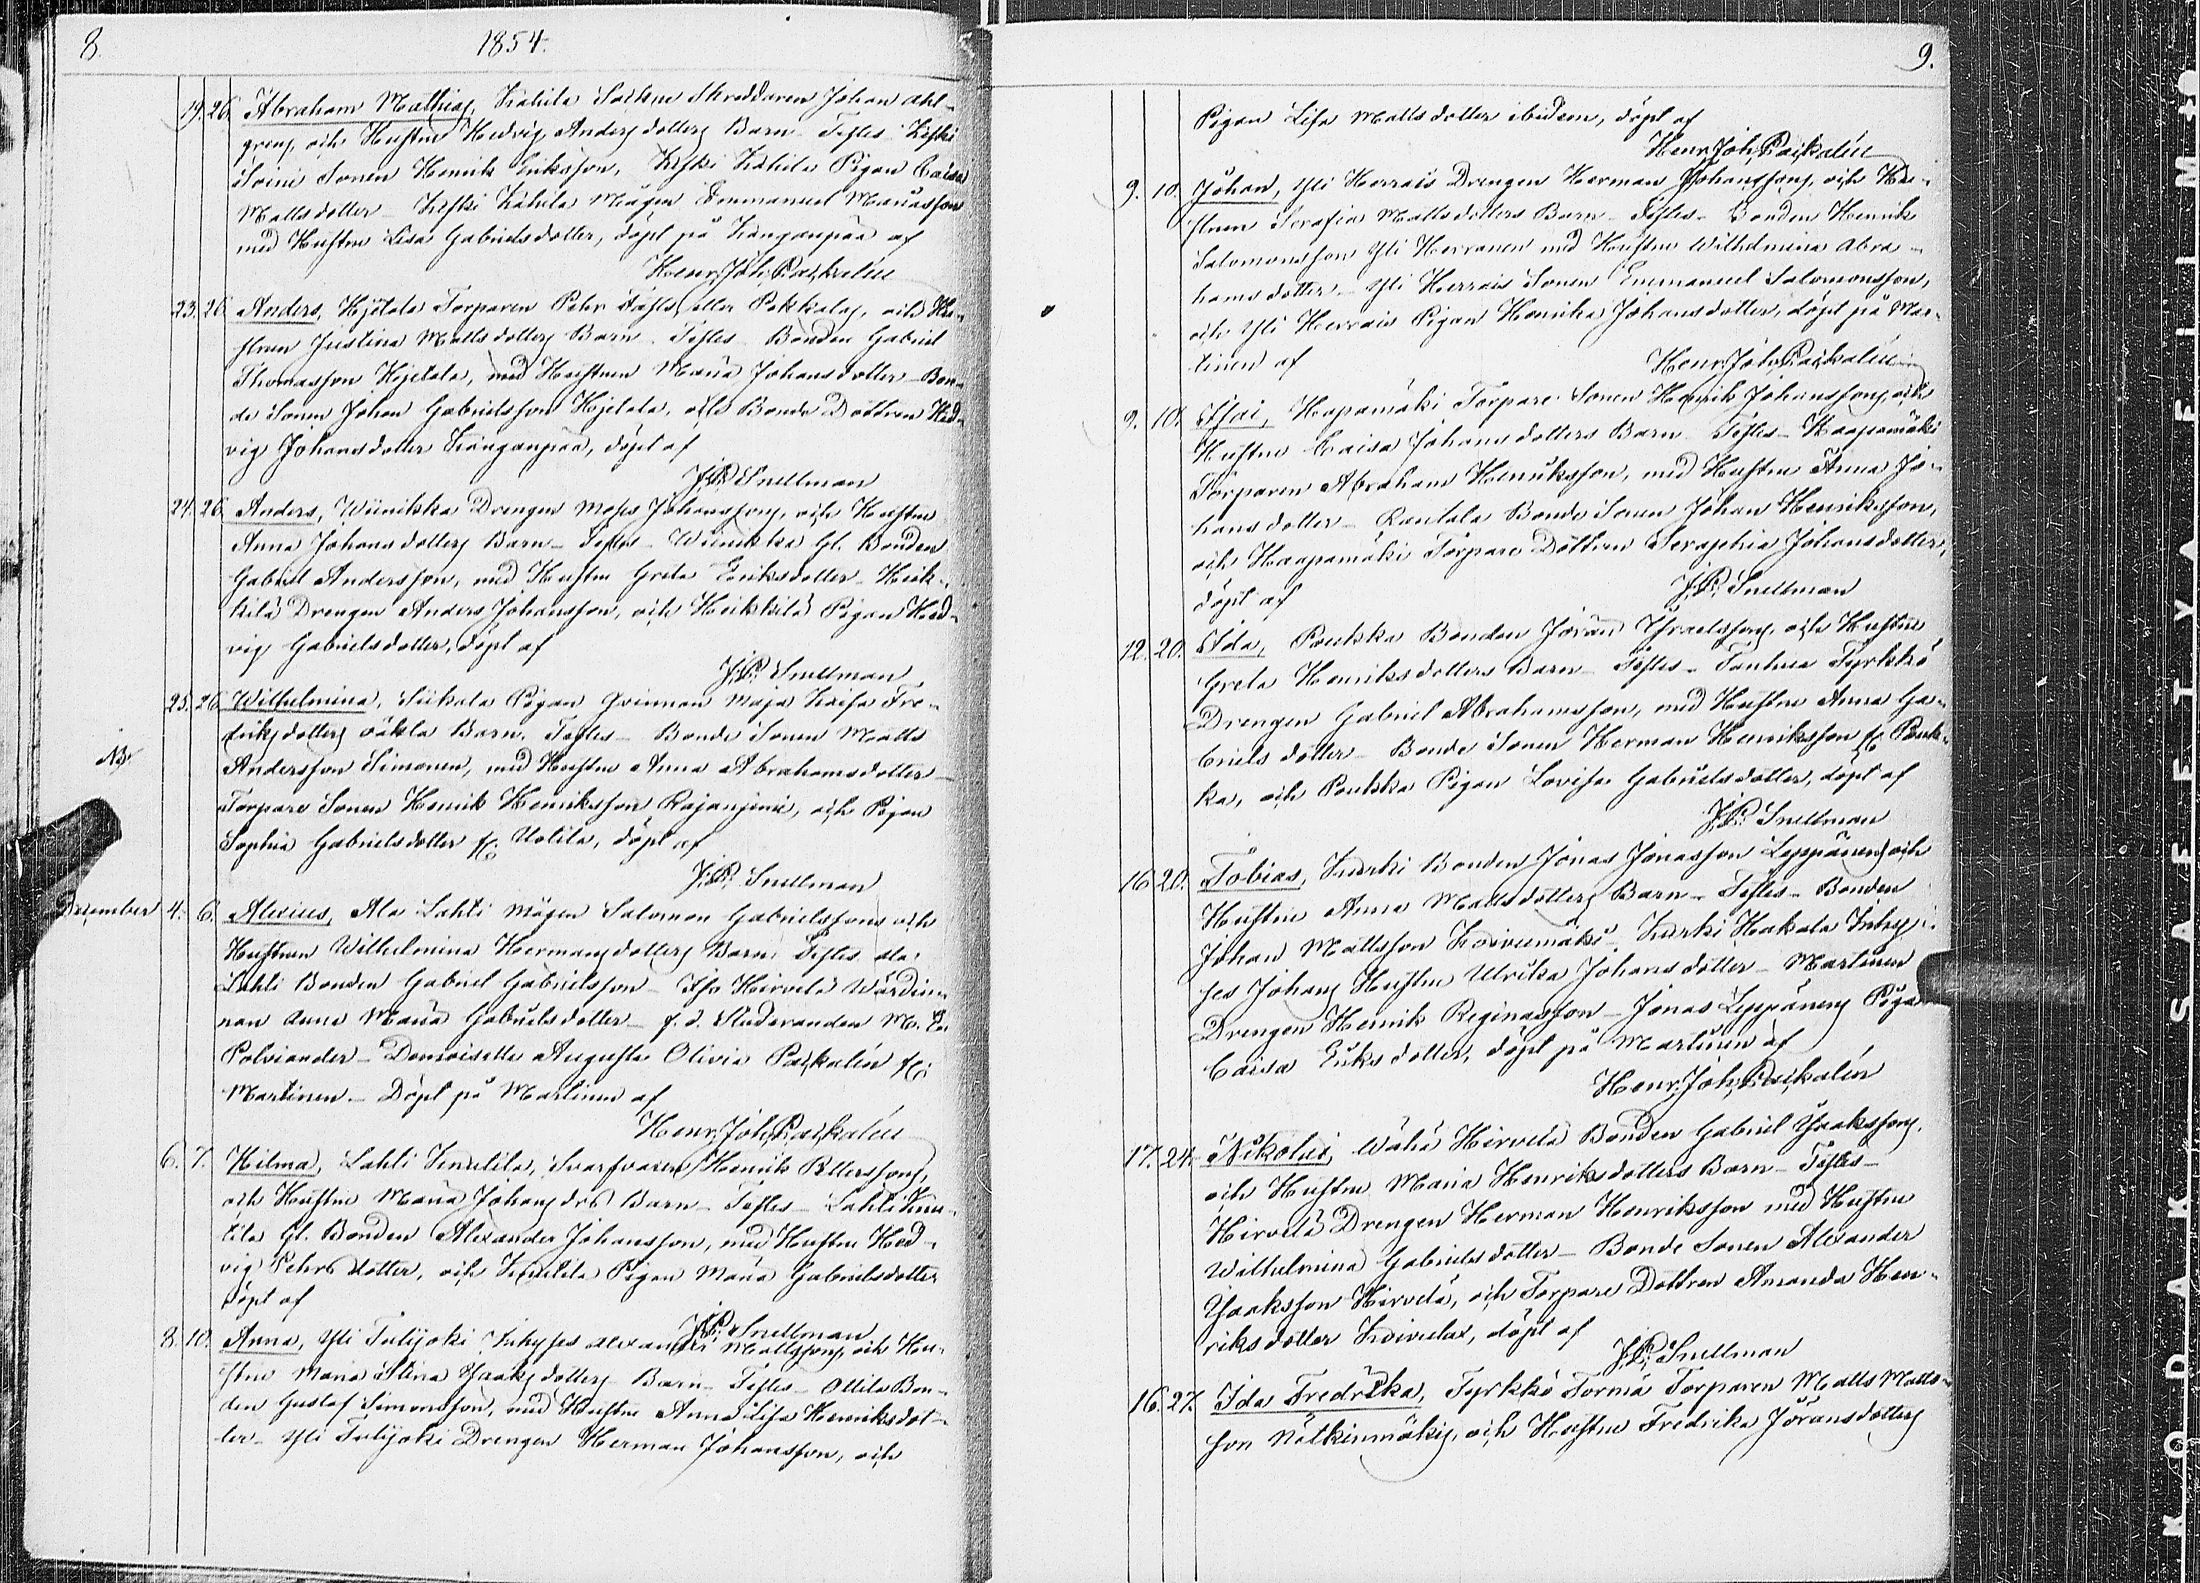 8.
1854.
19. 26. Abraham Mathias, Kähila Sockne Skreddaren Johan Ahl-
grens och Hustru Hedvig Andersdotters Barn – Testes – Keski
Soini Sonen Henrik Eriksson, Keski Kähila Pigan Caisa
Mattsdotter – Keski Kähila Mågen Emmanuel Manasson
med Hustru Lisa Gabrielsdotter, döpt på Kanganpää af
Henr. Joh. Paskalén
23. 26. Anders, Hjelala Torparen Pehr eller Pokkalas, och Hu-
strun Justina Mattsdotters Barn. Testes – Bonden Gabriel
Thomasson Hjelala, med Hustrun Maria Johansdotter – Bon-
de Sonen Johan Gabrielsson Hjelala, och Bonde Dottren Hed-
vig Johansdotter Kanganpää, döpt af
J.P. Snellman
24. 26. Anders, Wiinikka Drengen Moses Johanssons, och Hustru
Anna Johansdotters Barn – Testes – Wiinikka Gl. Bonden
Gabriel Andersson, med Hustru Greta Eriksdotter – Heik-
kilä Drengen Anders Johansson, och Heikkilä Pigan Hed-
vig Gabrielsdotter, döpt af
J.P. Snellman
25. 26. Wilhelmina, Siikala Pigan Qvinnan Maja Kaisa Fre-
driksdotters oäkta Barn. Testes – Bonde Sonen Matts
Andersson Simonen, med Hustru Anna Abrahamsdotter –
Torpare Sonen Henrik Henriksson Rajaniemi, och Pigan
Sophia Gabrielsdotter fr. Uotila, döpt af
J.P. Snellman
December 4. 6. Alexius, Ala Lahti Mågen Salomon Gabrielssons och
Hustrun Wilhelmina Hermansdotters Barn. Testes Ala
Lahti Bonden Gabriel Gabrielsson – Iso Hirvelä Wärdin-
nan Anna Maria Gabrielsdotter – f.d. Studeranden M. En
Polviander – Demoiselle Augusta Olivia Paskalén fr.
Martinen – Döpt på Martinen af
Henr. Joh. Paskalén
6. 7. Hilma, Lahti Knutila, Svarfvaren Henrik Pettersssons,
och Hustru Maria Johansdrs Barn – Testes – Lahti Knu-
tila Gl. Bonden Alexander Johansson, med Hustru Hed-
vig Pehrsdotter, och Knutila Pigan Maria Gabrielsdotter
döpt af
J.P. Snellman
8. 10. Anna, Yli Tulijoki Inhyses Alexander Mattssons, och Hu-
stru Maria Stina Isaaksdotters Barn – Testes – Ottila Bon-
den Gustaf Simonsson, med Hustru Anna Lisa Henriksdot-
ter – Yli Tulijoki Drengen Herman Johansson, och
9.
Pigan Lisa Mattsdotter ibidem, döpt af
Henr. Joh. Paskalén
9. 10. Johan, Yli Herrais Drengen Herman Johanssons, och Hu-
strun Serafia Mattsdotters Barn – Testes – Bonden Henrik
Salomonsson Yli Herranen med Hustru Wilhelmina Abra-
hamsdotter – Yli Herrais Sonen Emmanuel Salomonsson,
och Yli Herrais Pigan Henrika Johansdotter, döpt på Mar-
tinen af
Henr. Joh. Paskalén
9. 10. Esai, Hapamäki Torpare Sonen Henrik Johanssons, och
Hustru Caisa Johansdotters Barn – Testes – Haapamäki
Torparen Abraham Henriksson, med Hustru Anna Jo-
hansdotter – Rantala Bonde Sonen Johan Henriksson,
och Haapamäki Torpare Dottren Seraphia Johansdotter,
döpt af
J.P. Snellman
12. 20. Ida, Poukka Bonden Jöran Israelssons, och Hustru
Greta Henriksdotters Barn – Testes – Tanhua Tyrkkö
Drengen Gabriel Abrahamsson, med Hustru Anna Ga-
brielsdotter – Bonde Sonen Herman Henriksson fr. Pouk-
ka, och Poukka Pigan Lovisa Gabrielsdotter, döpt af
J.P. Snellman
16 20. Tobias, Kurki Bonden Jonas Jonasson Leppänens och
Hustru Anna Mattsdotters Barn – Testes – Bonden
Johan Mattsson Koivumäki – Kurki Hakala Inhy-
ses Johans Hustru Ulrika Johansdotter – Martinen
Drengen Henrik Reginasson – Jonas Leppänens Piga
Caisa Eriksdotter, döpt på Martinen af
Henr. Joh. Paskalén
17. 24. Nikolai, Wähä Hirvelä Bonden Gabriel Isaakssons,
och Hustru Maria Henriksdotters Barn – Testes –
Hirvelä Drengen Herman Henriksson med Hustru
Wilhelmina Gabrielsdotter – Bonde Sonen Alexander
Isaaksson Hirvelä, och Torpare Dottren Amanda Hen-
riksdotter Koivula, döpt af
J.P. Snellman
16. 27. Ida Fredrika, Tyrkkö Tormä Torparen Matts Matts-
son Nätkinmäkis, och Hustru Fredrika Jöransdotters